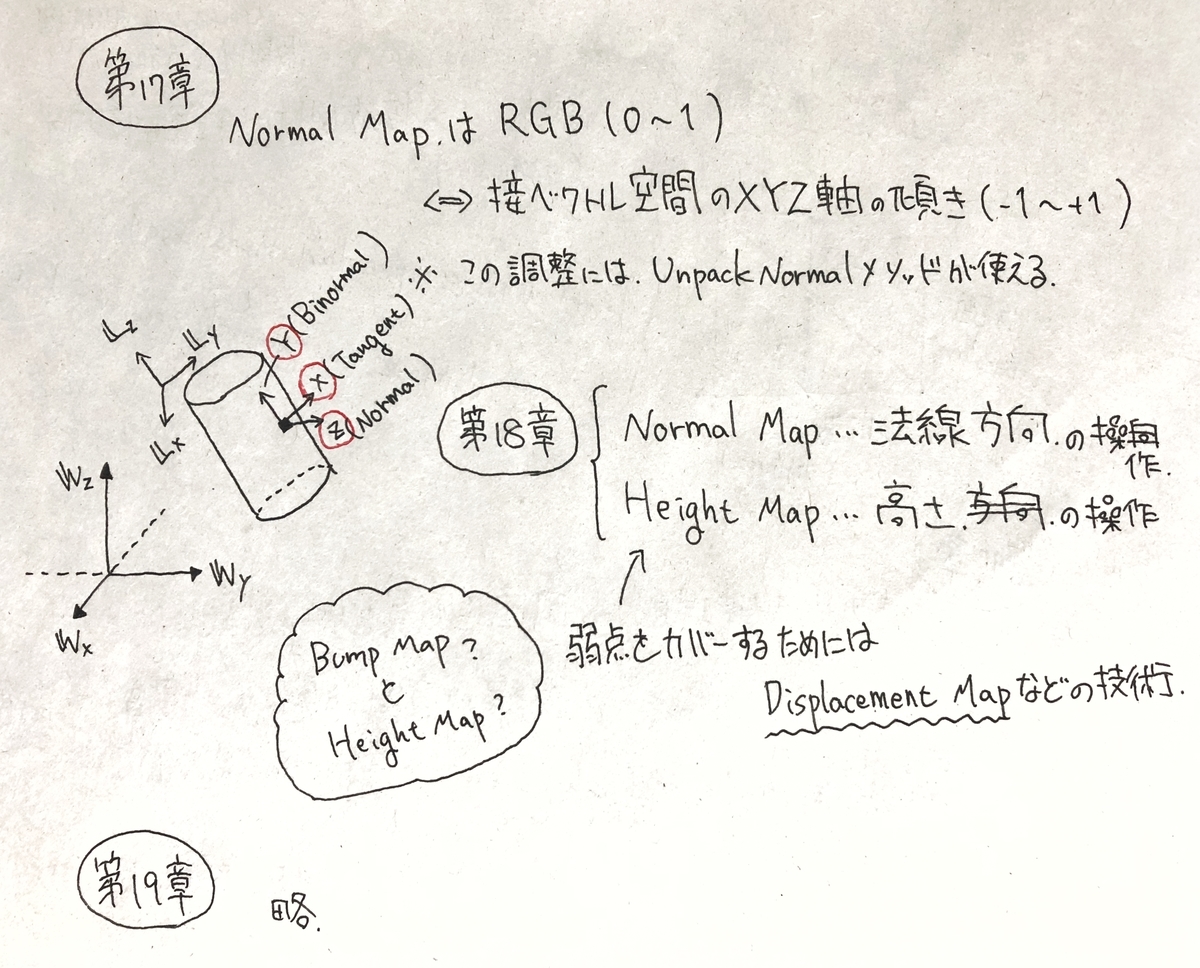 第17章
Normal Map は RGB (0~1)
⇔ 接ベクトル空間のXYZ軸の傾き (-1~+1)
※ この調整には. Unpack Normal メソッドが使える.
Y (Binormal)
X (Tangent)
Z (Normal)
Lz
Ly
Lx
Wz
Wy
Wx
第18章
Normal Map … 法線方向.の操作.
Height Map … 高さ.方向.の操作
弱点をカバーするためには
Displacement Mapなどの技術.
Bump Map?
と
Height Map?
第19章
略.